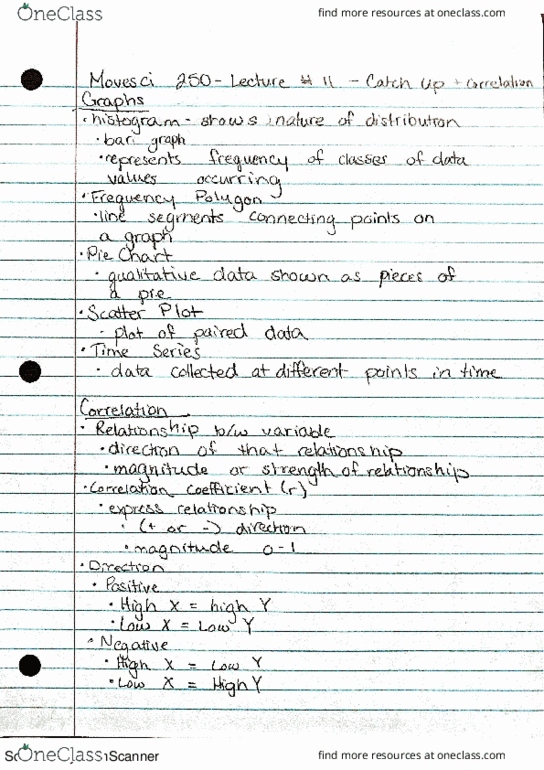 OneClass
find more resources at oneclass.com
Movesci 250 - Lecture # 11 - Catch Up + Correlation
Graphs
• histogram - shows nature of distribution
• bar graph
• represents frequency of classes of data
values occurring
• Frequency Polygon
• line segments connecting points on
a graph
• Pie Chart
• qualitative data shown as pieces of
a pie
• Scatter Plot
• plot of paired data
• Time Series
• data collected at different points in time
Correlation
• Relationship b/w variable
• direction of that relationship
• magnitude or strength of relationship
• Correlation coefficient (r)
• express relationship
• (+ or -) direction
• magnitude 0-1
• Direction
• Positive
• High X = high Y
• Low X = Low Y
• Negative
• High X = Low Y
• Low X = High Y
OneClass
Scanner
find more resources at oneclass.com